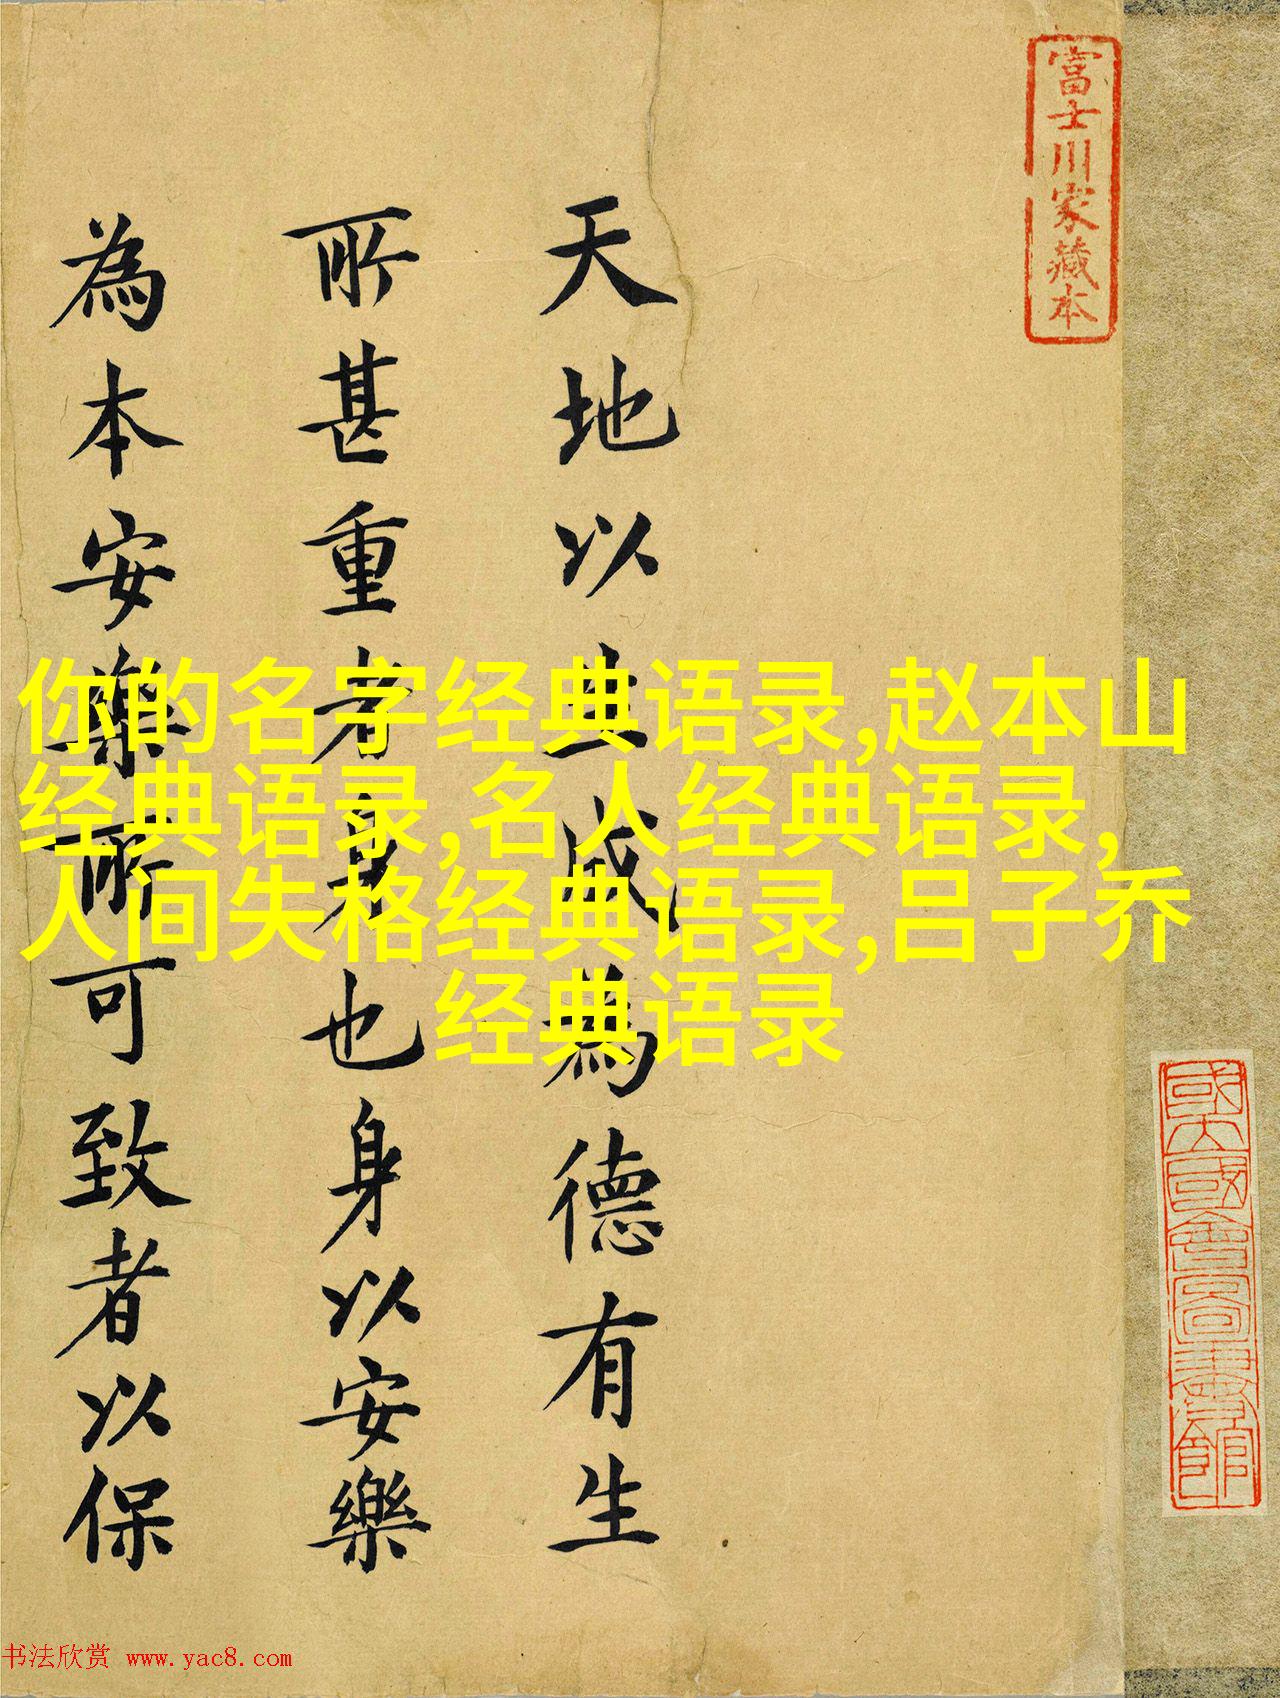 富士川家藏本
天地以生成為德有生
所甚重者身也身以安樂
為本安樂所可致者以保
你的名字经典语录,赵本山
经典语录,名人经典语录,
人间失格经典语录,吕子乔
经典语录
書法欣赏 www.yac8.com